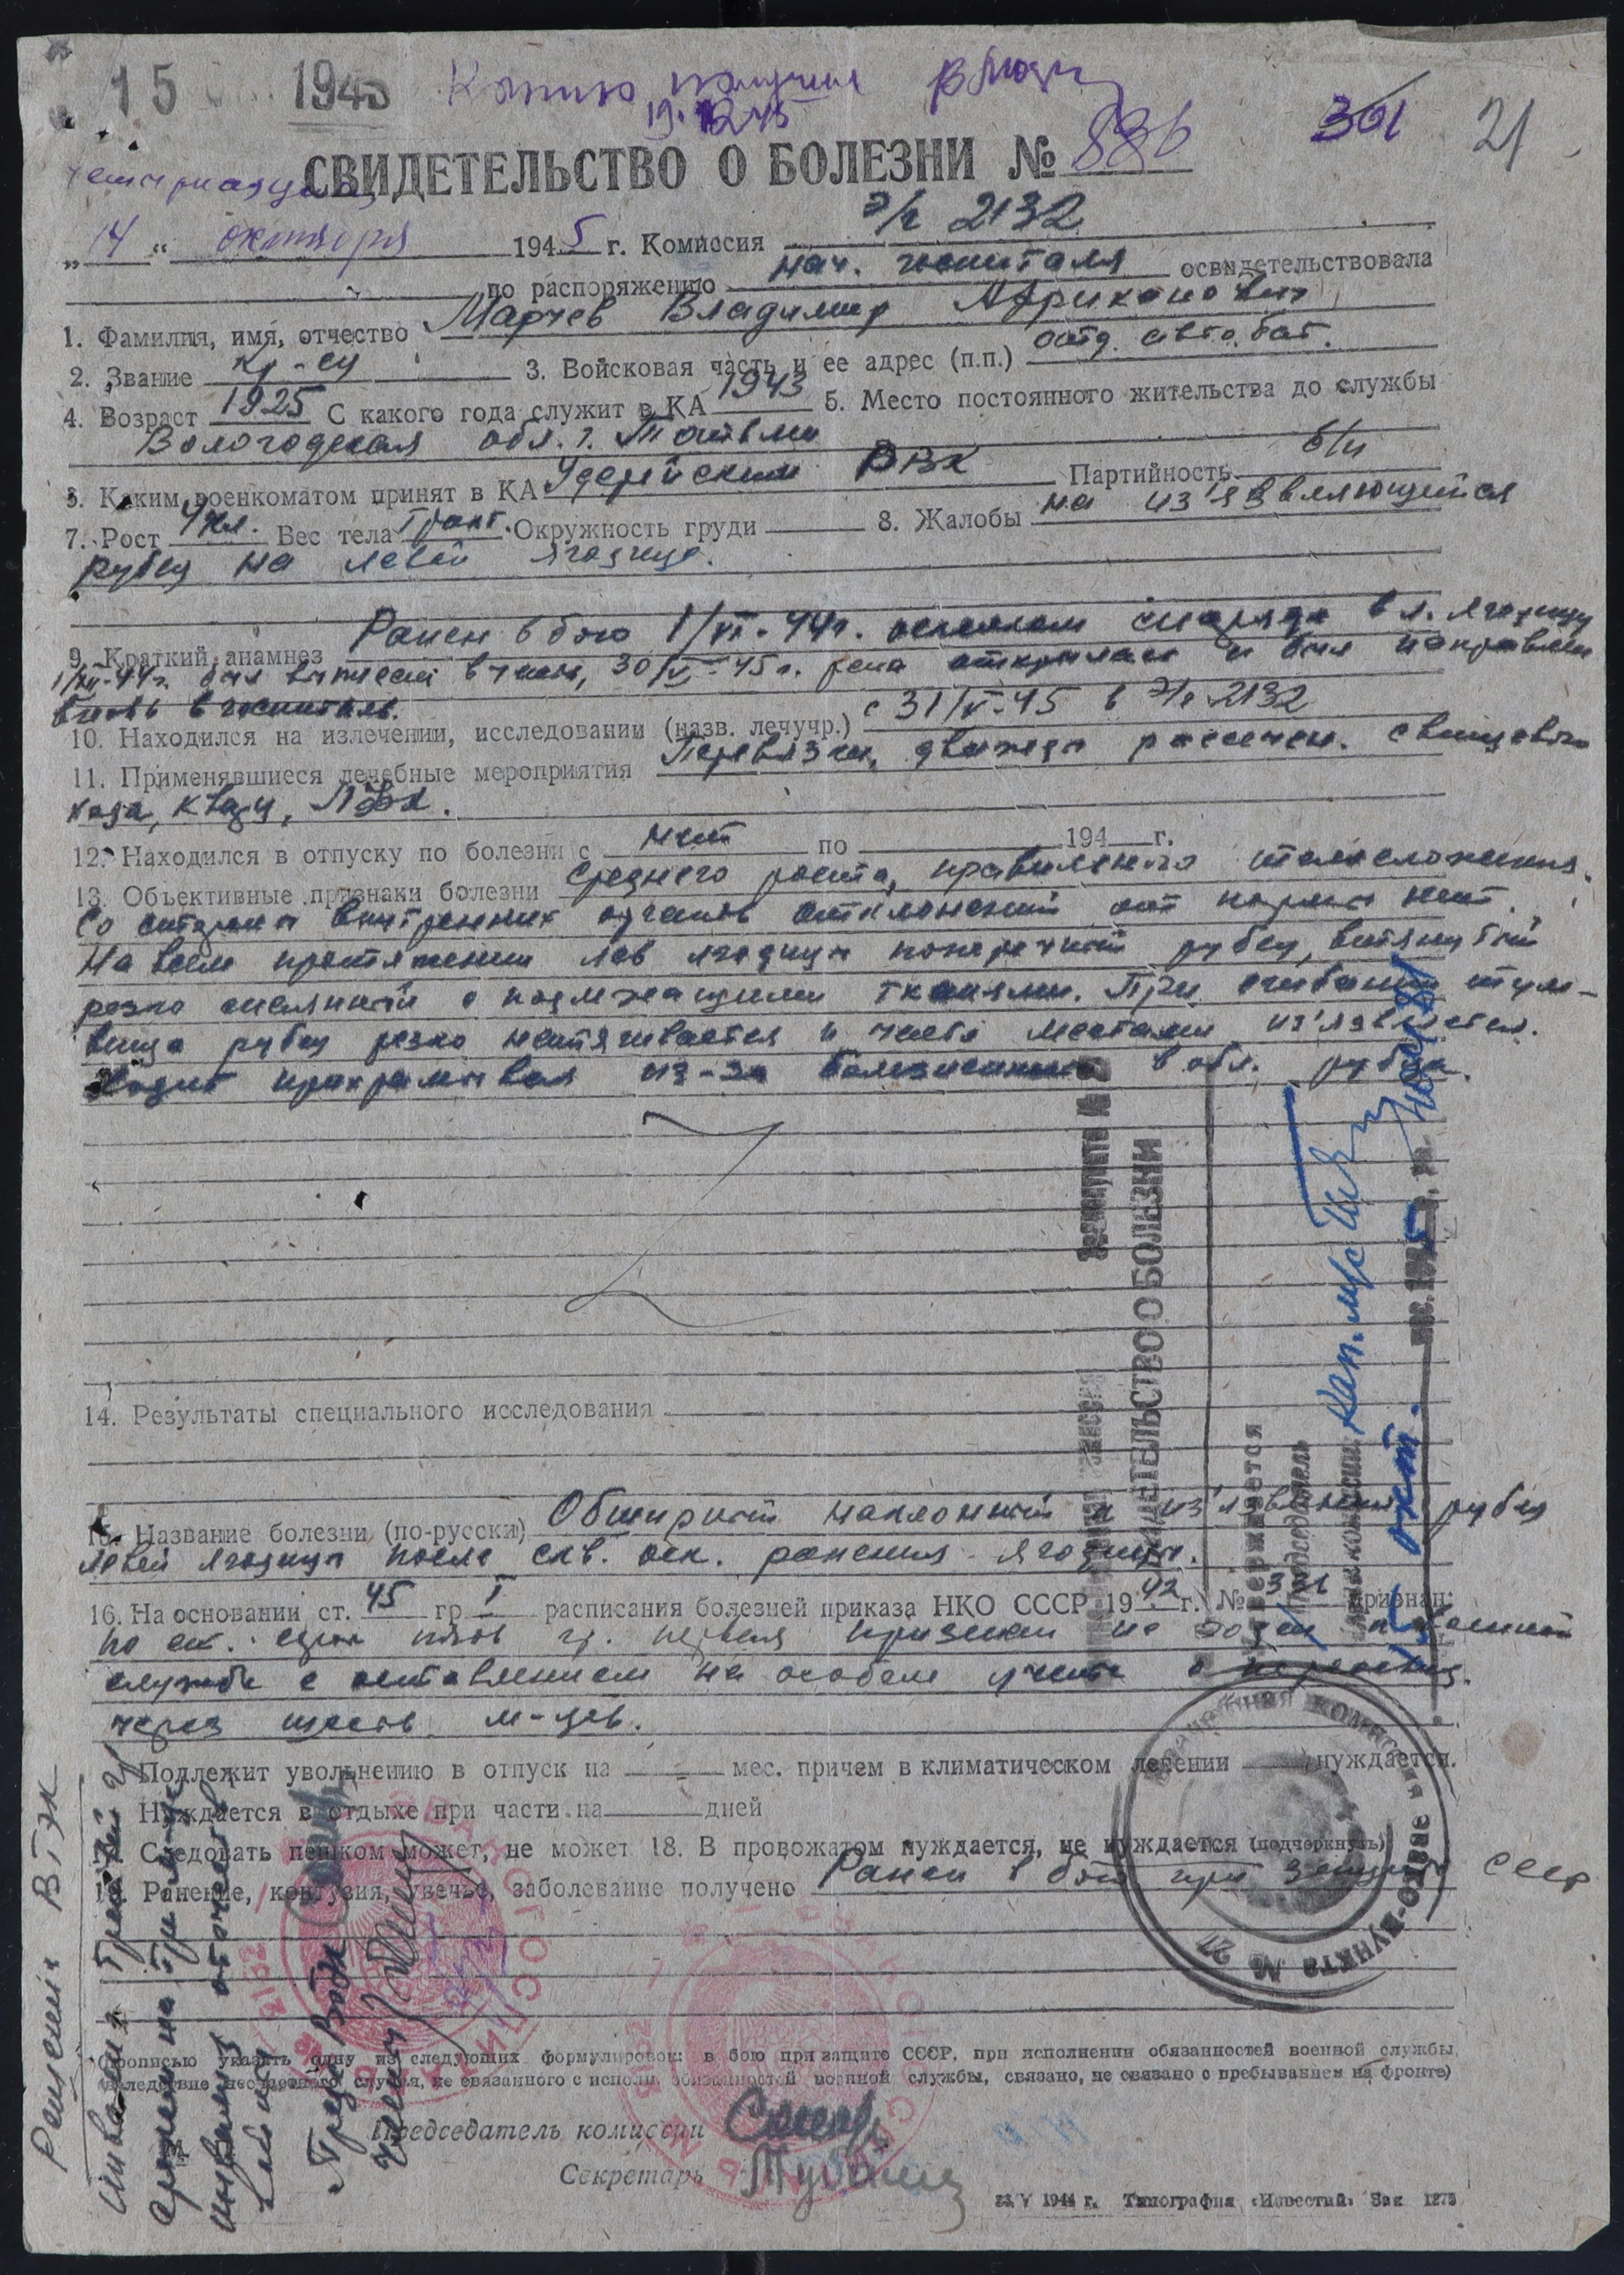 15 1945 Копию получил
19.12.45
301 21
СВИДЕТЕЛЬСТВО О БОЛЕЗНИ № 886
„14“ октября 1945 г. Комиссия Э/г 2132
по распоряжению нач. госпиталя освидетельствовала
1. Фамилия, имя, отчество Марчев Владимир Африканович
2. Звание кр-ец 3. Войсковая часть и ее адрес (п.п.) отд. авто. бат.
4. Возраст 1925 С какого года служит в КА 1943 5. Место постоянного жительства до службы
Вологодская обл. г. Тотьма
6. Каким военкоматом принят в КА Удерейским РВК Партийность б/п
7. Рост Вес тела Окружность груди 8. Жалобы на из'язвляющийся
рубец на левой ягодице.
9. Краткий анамнез Ранен в бою 1/VI-44г. осколком снаряда в л. ягодицу
1/XII-44г. был выписан в часть, 30/V-45г. рана открылась и был направлен
вновь в госпиталь.
10. Находился на излечении, исследовании (назв. лечучр.) с 31/V-45 в Э/г 2132
11. Применявшиеся лечебные мероприятия Перевязки, дважды рассечен. свищевого
хода, кварц, ЛФК.
12. Находился в отпуску по болезни с нет по 194 г.
13. Объективные признаки болезни Среднего роста, правильного телосложения.
Со стороны внутренних органов отклонений от нормы нет.
На всем протяжении лев ягодицы поперечный рубец, втянутый
резко спаянный с подлежащими тканями. При сгибании туло-
вища рубец резко натягивается и часто местами из'язвляется.
Ходит прихрамывая из-за болезненности в обл. рубца.
14. Результаты специального исследования
15. Название болезни (по-русски) Обширный наклонный к из'язвлению рубец
левой ягодицы после скв. оск. ранения ягодицы.
16. На основании ст. 45 гр I расписания болезней приказа НКО СССР 1942 г. № 336 признан:
по ст. сорок пять гр. первая признан не годен к военной
службе с оставлением на особом учете с переосвид.
через шесть м-цев.
Подлежит увольнению в отпуск на мес. причем в климатическом лечении нуждается.
Нуждается в отдыхе при части на дней
Следовать пешком может, не может 18. В провожатом нуждается, не нуждается (подчеркнуть)
19. Ранение, контузия, увечье, заболевание получено Ранен в бою при защите СССР
(прописью указать одну из следующих формулировок: в бою при защите СССР, при исполнении обязанностей военной службы,
вследствие несчастного случая, не связанного с исполн. обязанностей военной службы, связано, не связано с пребыванием на фронте)
М
Председатель комиссии
Секретарь
23/V 1944 г. Типография «Известий» Зак 1275
Эвакопункте №
СВИДЕТЕЛЬСТВО О БОЛЕЗНИ
утверждается
Председатель
комиссии Кап. м/с
15 окт. 1945
КОМИССИЯ
ПУНКТА № 27
Решение ВТЭК
инвалид третьей гр
сроком на три м-ца
инвалид отечеств
войны
Пред ВТЭК